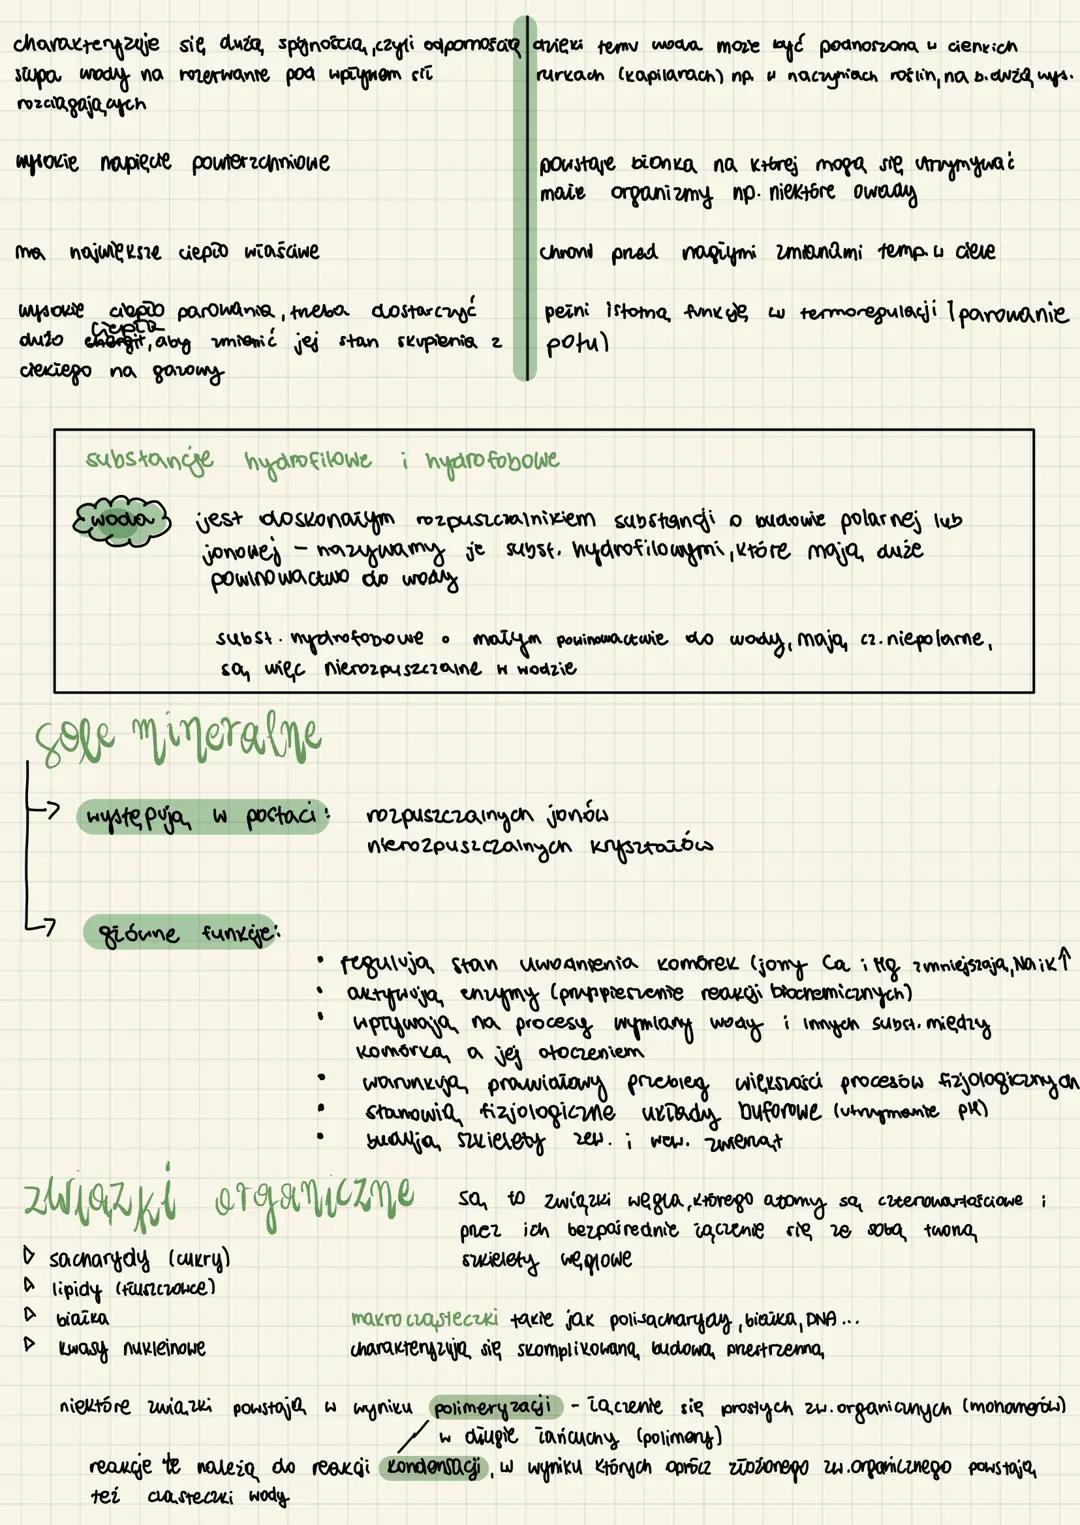 charakteryzuje się dużą spójnością, czyli odpornością
słupa wody na rozerwanie pod wpływem sił
rozciągających
dzięki temu woda może być podnoszona w cienkich
rurkach (kapilarach) np. w naczyniach roślin, na b. dużą wys.
wysokie napięcie powierzchniowe
powstaje błonka na której mogą się utrzymywać
małe organizmy np. niektóre owady
ma największe ciepło właściwe
chroni przed nagłymi zmianami temp. w ciele
wysokie ciepło parowania, trzeba dostarczyć
ciepła
dużo energii, aby zmienić jej stan skupienia z
ciekłego na gazowy
pełni istotną funkcję w termoregulacji (parowanie
potu)
substancje hydrofilowe i hydrofobowe
woda jest doskonałym rozpuszczalnikiem substancji o budowie polarnej lub
jonowej - nazywamy je subst. hydrofilowymi, które mają duże
powinowactwo do wody
subst. hydrofobowe o małym powinowactwie do wody, mają cz. niepolarne,
są więc nierozpuszczalne w wodzie
sole mineralne
→ występują w postaci: rozpuszczalnych jonów
nierozpuszczalnych kryształów
→ główne funkcje:
• regulują stan uwodnienia komórek (jony Ca i Mg zmniejszają, Na i K ↑
• aktywują enzymy (przyspieszenie reakcji biochemicznych)
• wpływają na procesy wymiany wody i innych subst. między
komórką a jej otoczeniem
• warunkują prawidłowy przebieg większości procesów fizjologicznych
• stanowią fizjologiczne układy buforowe (utrzymanie pH)
• budują szkielety zew. i wew. zwierząt
związki organiczne
są to związki węgla, którego atomy są czterowartościowe i
przez ich bezpośrednie łączenie się ze sobą tworzą
szkielety węglowe
▷ sacharydy (cukry)
▷ lipidy (tłuszczowce)
▷ białka
▷ kwasy nukleinowe
makrocząsteczki takie jak polisacharydy, białka, DNA...
charakteryzują się skomplikowaną budową przestrzenną
niektóre związki powstają w wyniku polimeryzacji - łączenie się prostych zw. organicznych (monomerów)
w długie łańcuchy (polimery)
reakcje te należą do reakcji kondensacji, w wyniku których oprócz złożonego zw. organicznego powstają
też cząsteczki wody